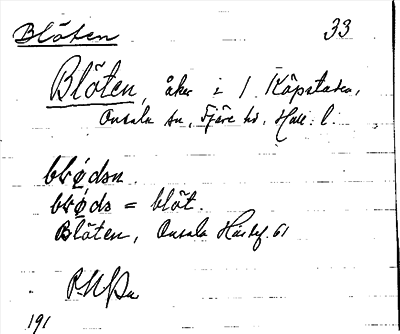 Blöten 33
Blöten, åker i 1 Kåpstaden,
Onsala sn, Fjäre hd. Hall. l.
bløds = blöt.
Blöten, Onsala 61
191